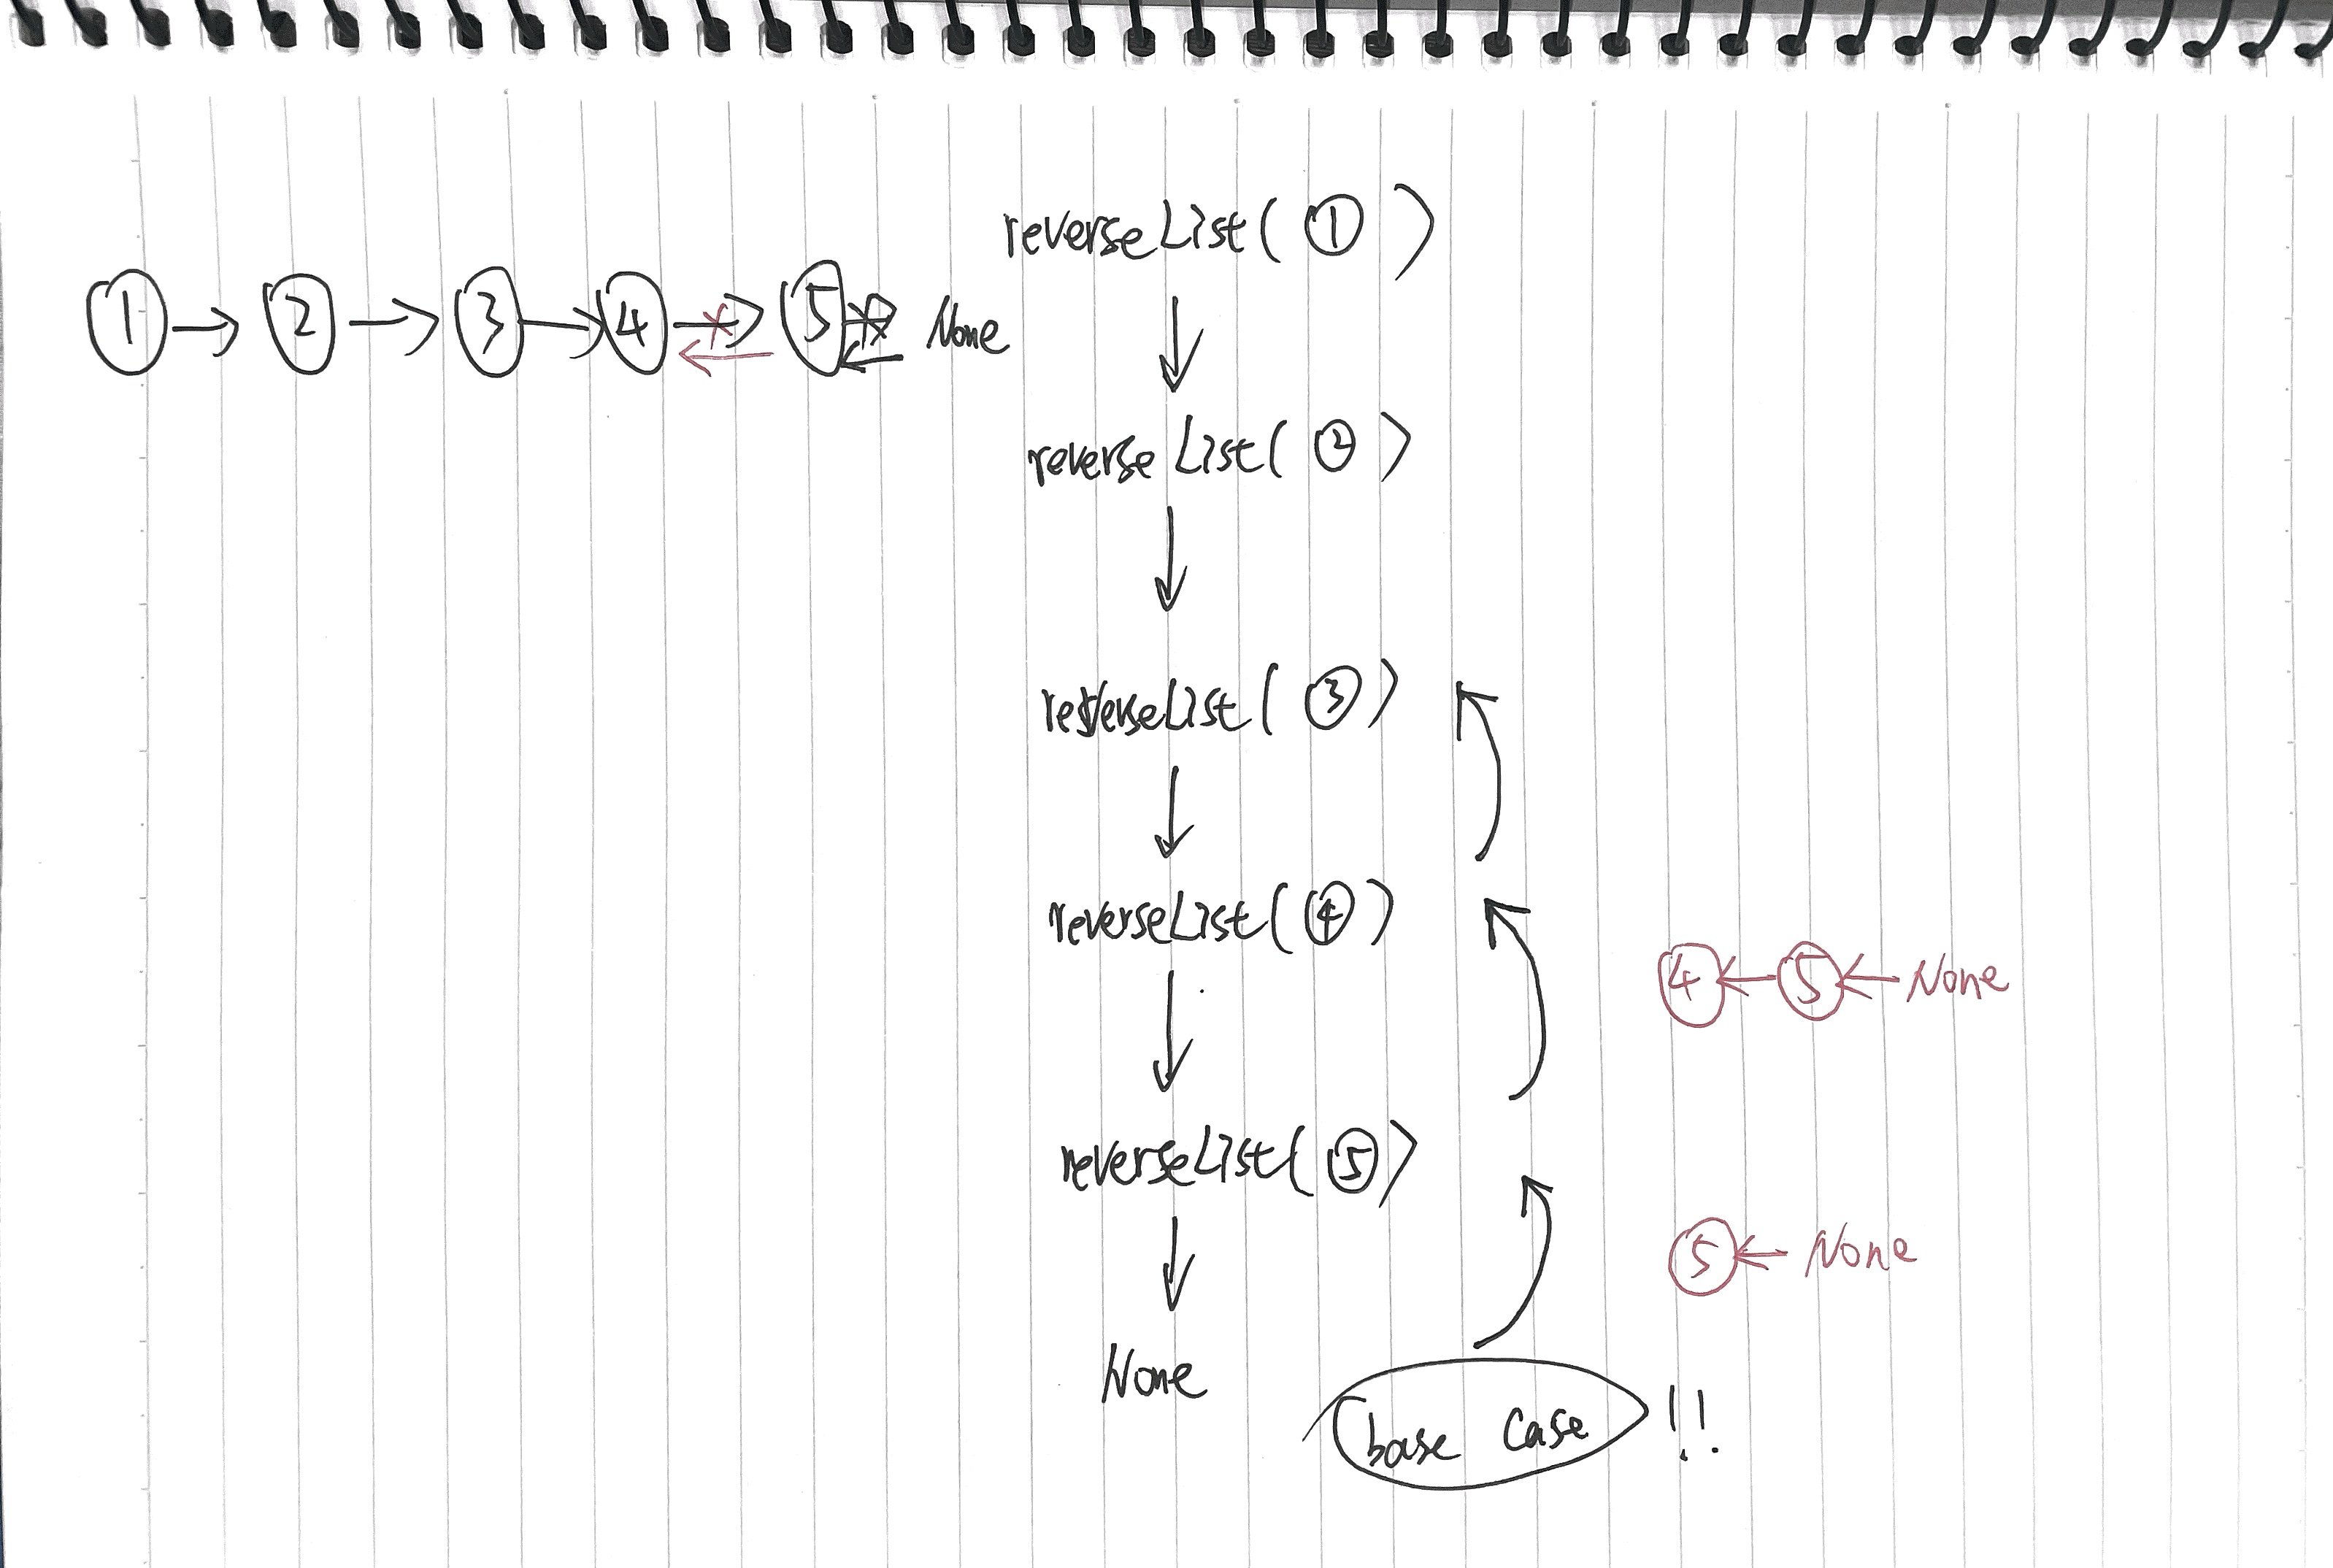 1 → 2 → 3 → 4 → 5 → None
reverseList( ① )
↓
reverse List( ② )
↓
reverseList( ③ )
↓
reverseList( ④ )
4 ← 5 ← None
↓
reverseList( ⑤ )
5 ← None
↓
None
base case !!